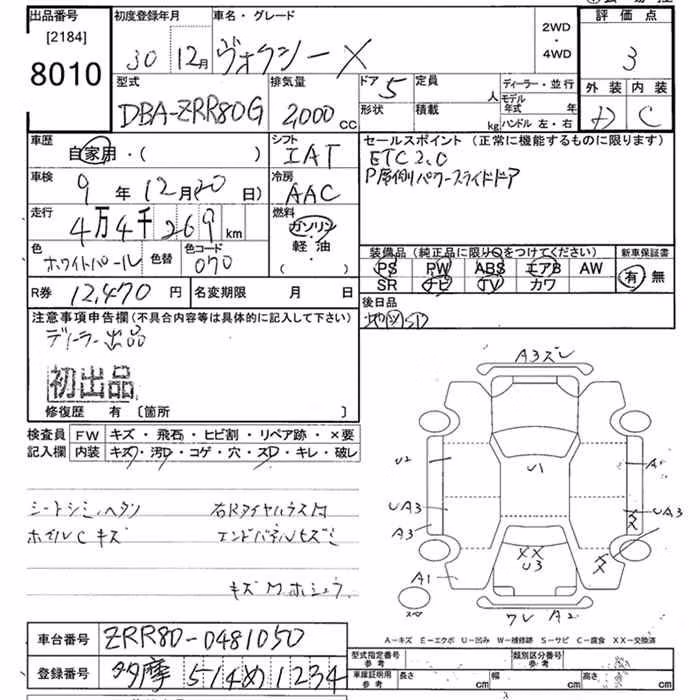 出品番号 初度登録年月 車名・グレード 2WD・4WD 評価点
[2184]
8010 30 12月 ヴォクシー X 3
型式 排気量 ドア 5 定員 人 ディーラー・並行 外装 内装
DBA-ZRR80G 2,000 CC 形状 積載 kg モデル年式 年 ハンドル 左・右 C
車歴 シフト セールスポイント (正常に機能するものに限ります)
自家用・( ) IAT ETC 2.0
車検 冷房 P席側パワースライドドア
9 年 12 月 20 日) AAC
走行 燃料
4万4千269 km ガソリン
軽・油
( )
色 色替 色コード 装備品 (純正品に限り○をつけてください) 新車保証書
ホワイトパール 070 PS PW ABS エアB AW 有 無
SR ナビ TV カワ
R券 12,470 円 名変期限 月 日 後日品
注意事項申告欄(不具合内容等は具体的に記入して下さい)
ディーラー出品
初出品
修復歴 有 [箇所 ]
検査員 FW キズ・飛石・ヒビ割・リペア跡・×要
記入欄 内装 キズ・汚レ・コゲ・穴・スレ・キレ・破レ
シートシミ、ヘタリ
ホイルC キズ エンドパネルヒズミ
A3 ズレ
U2 U1 A1
UA3 UA3
A3 XX
XX
U3
A1
ワレ A2
A－キズ E－エクボ U－凹み W－補修跡 S－サビ C－腐食 XX－交換済
車台番号 ZRR80-0481050 型式指定番号 参考 類別区分番号 参考
登録番号 多摩 514 め 1234 車庫証明用 参考 長さ cm 幅 cm 高さ cm